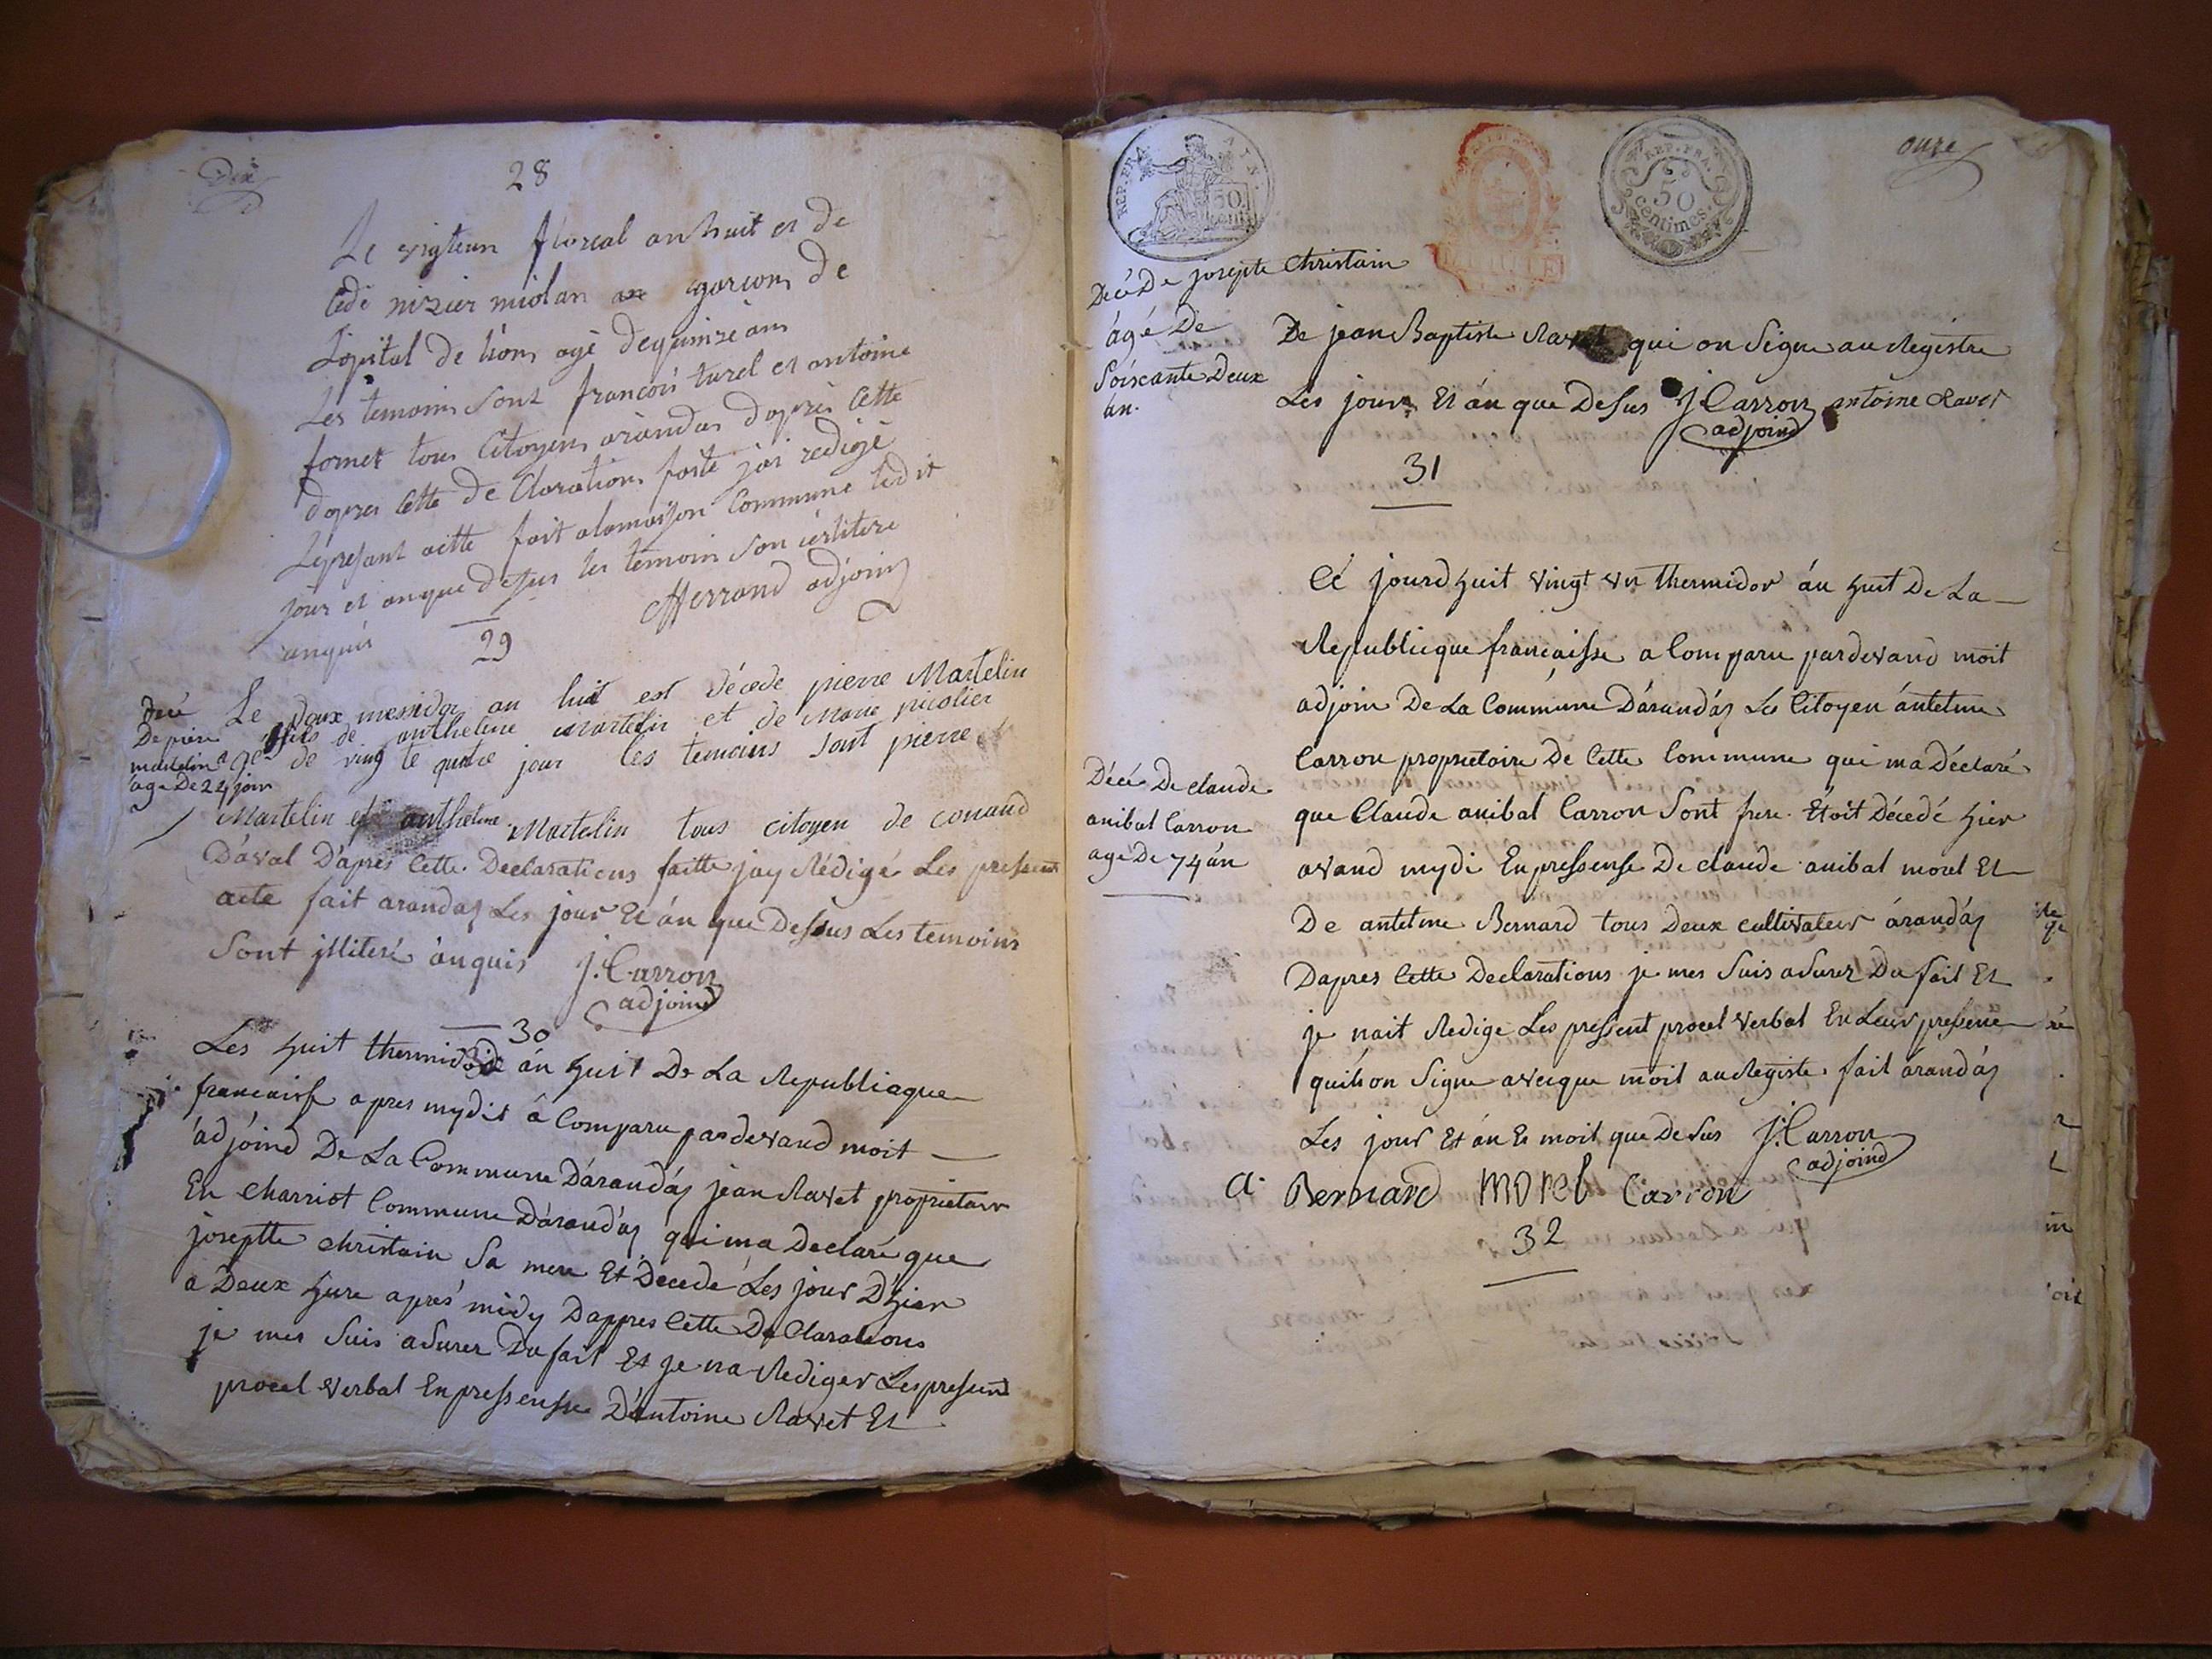 Dix
28
Le vigtieun floreal an huit es de
cede nizier miolan garcon de
Lopital de lion agé dequinze ans
Les temoin sont francois turel es antoine
fornet tous Citoyens arandas dapres Cette
dapres Cette de Claration faite jai redigé
Lepresant actte fait alamaison Commune ledit
jour et anque desus les temoin son
anquis adjoin
29
Decé
De piere
martelin
agé De 24 join
Le Deux messidor an huit est décedé pierre Martelin
fils de anthelme Martelin et de Marie picolier
agé de ving te quatre jour les temoins sont pierre
Martelin et anthelme Martelin tous citoyen de conand
Daval D'après Cette Declarations faitte jay Rédigé Les present
acte fait arandas Les jour Et án que Dessus Les temoins
Sont jlliteré ánquis J. Carron
adjoind
30
Les huit thermidor án huit De La Republicque
francaisse apres mydis â Comparu pardevand moit
adjoind De La Commune Dárandás jean Ravet propriétair
En Charriot Commune Dárandás qui ma Declaré que
joseptte christain Sa mere Et Decedé Les jour Dhier
a Deux hure apres midy Dappres Cette De Clarations
je mes Suis aSurer Du fait Et je na Rediger Lespresent
procel verbal En pressensse D'antoine Ravet Et
onze
REP. FRA.
50
cent.
REP. FRA.
50
centimes.
Décé De josepte Christain
ágé De
Soiscante Deux
án.
De jean Baptiste Ravet qui on Signe au Régistre
Les jours Et án que DeSus J. Carron antoine Ravet
adjoind
31
Cé jourdhuit vingt un thermidor án huit De La
Republicque francaisse a Comparu pardevand moit
adjoin De La Commune Dárandás Les Citoyen ántelme
Carron proprietaire De Cette Commune qui ma Déclaré
Décé De claude
anibal Carron
agé De 74 án
que Claude anibal Carron Sont frere Étoit Décedé hier
avand mydi En pressensse De claude anibal morel Et
De antelme Bernard tous Deux cultivateur árandás
Dapres Cette Declarations je mes Suis aSurez Du fait Et
je nait Redige Les pressent procel verbal En Leur pressence
quils on Signe avecque moit au Registe. fait árandás
Les jour Et án Et moit que DeSus J. Carron
adjoind
a. Bernard morel Carron
32